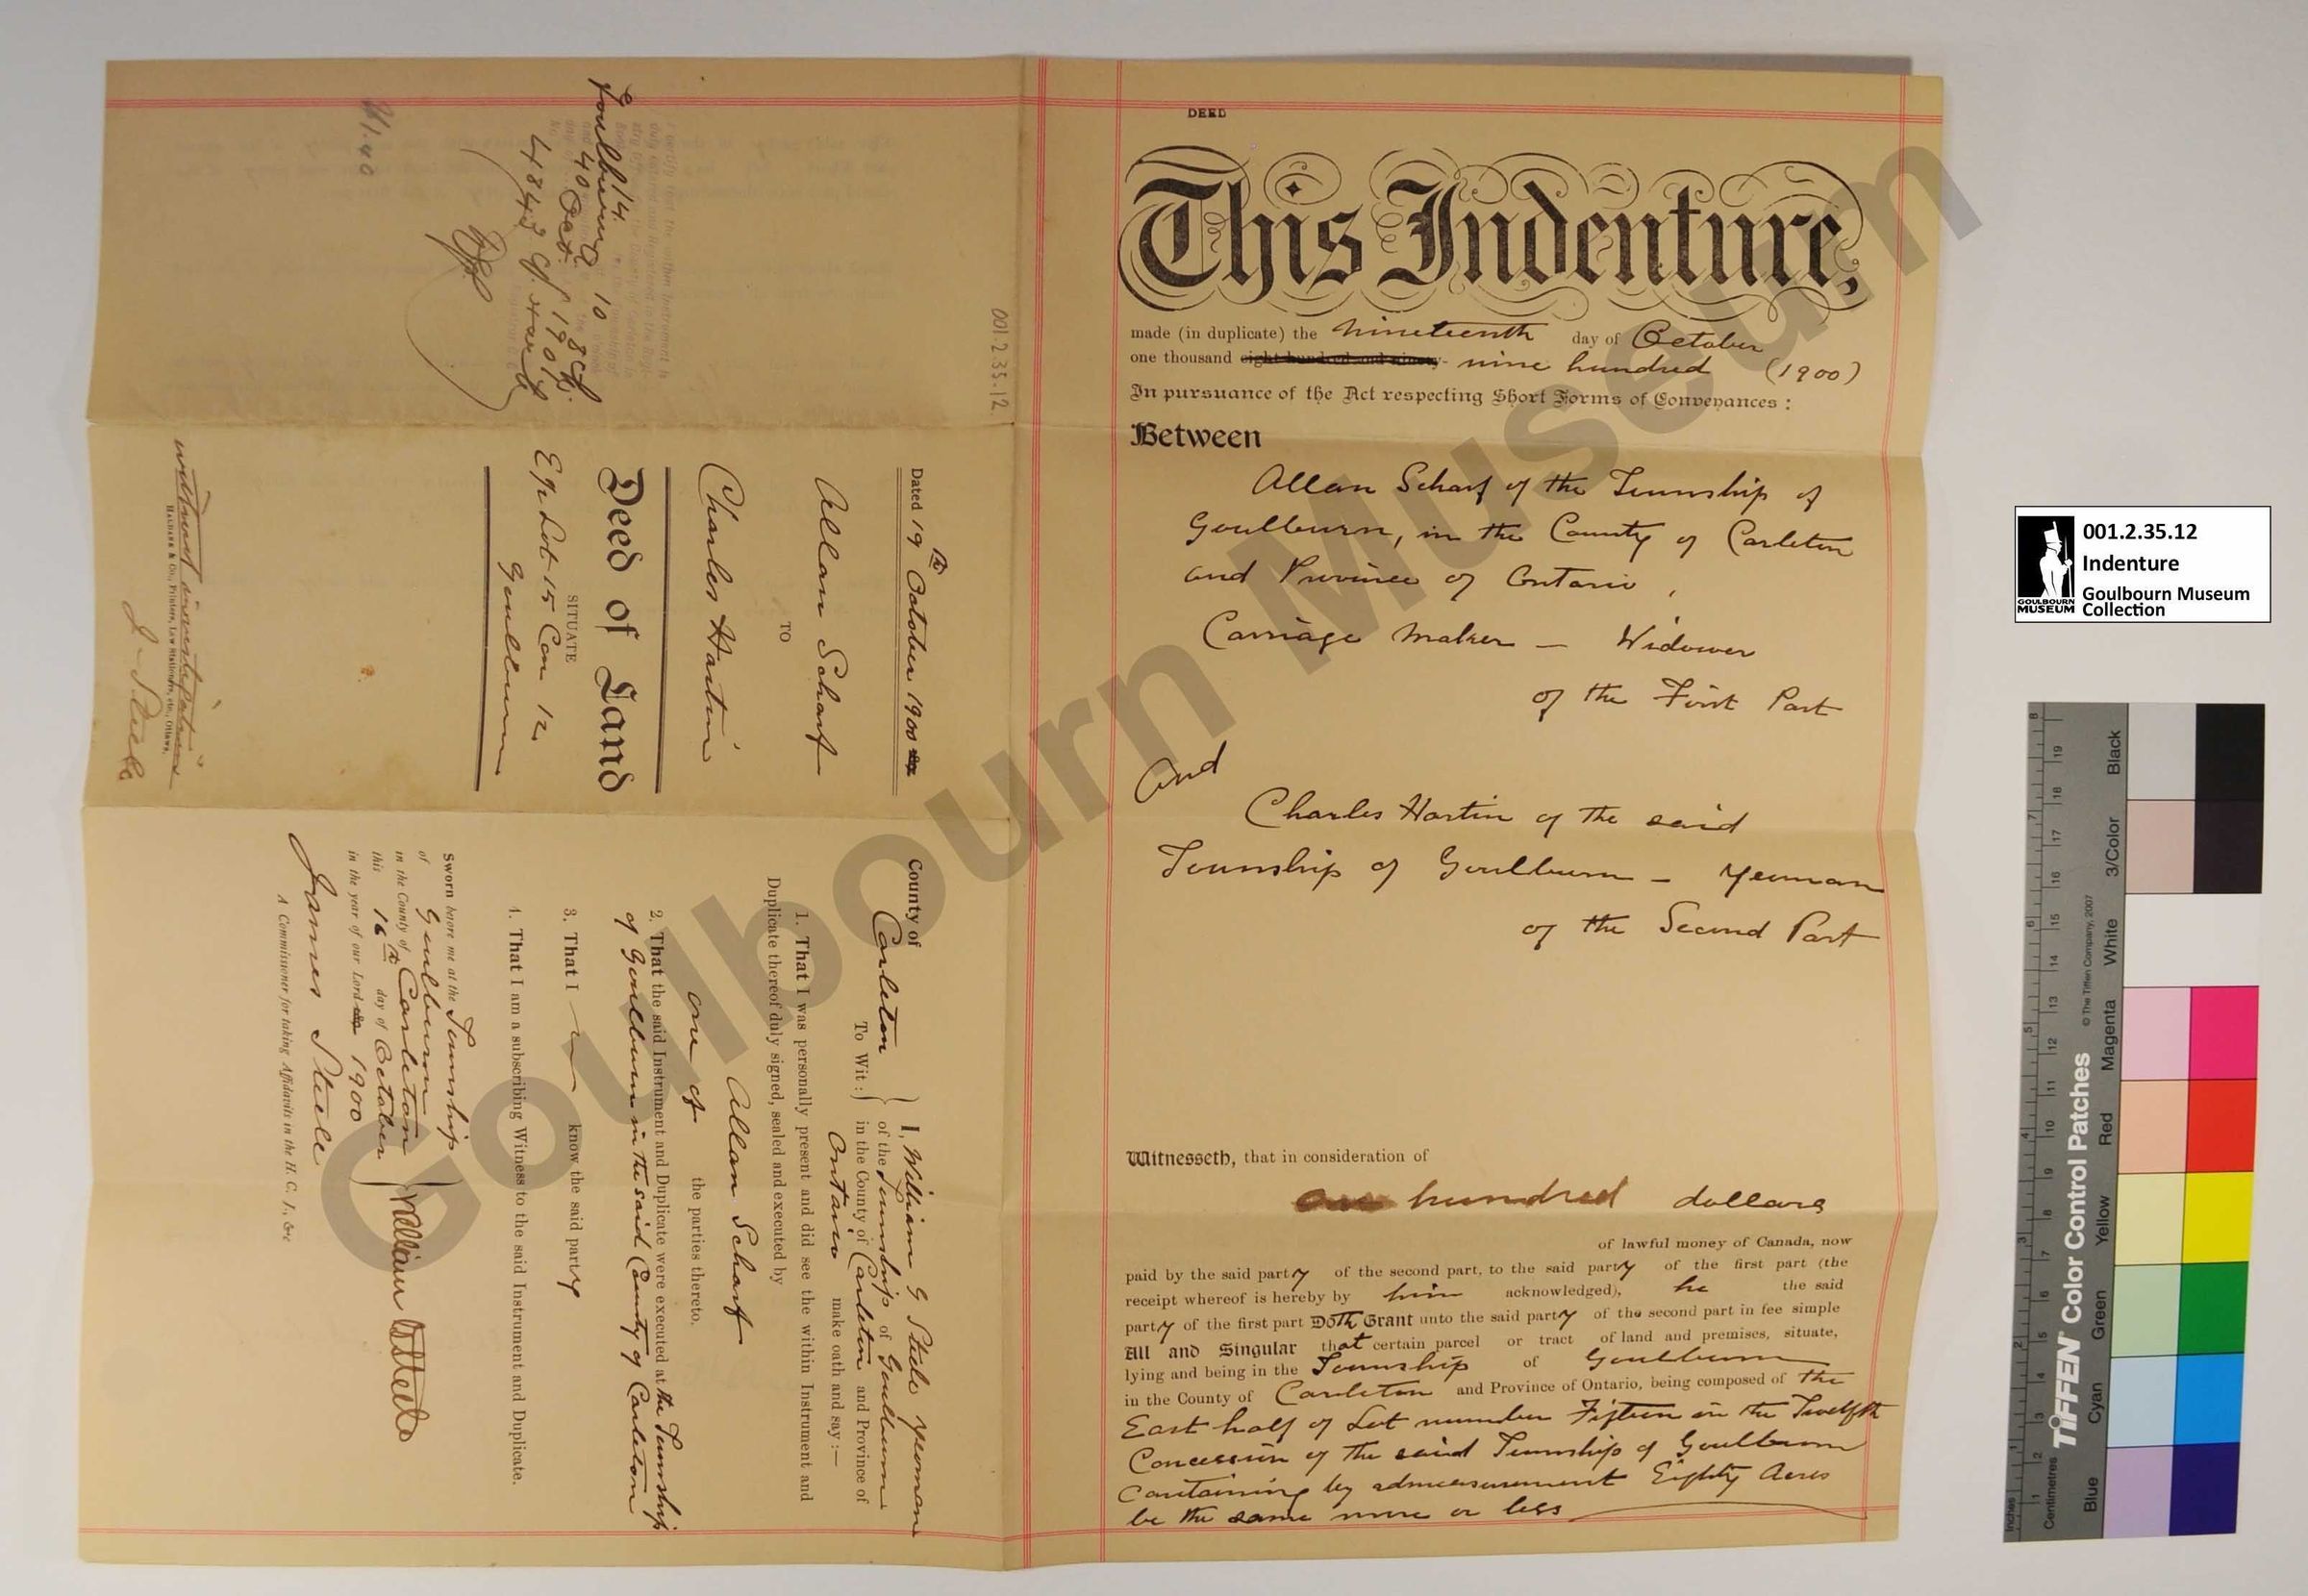 DEED
This Indenture,
made (in duplicate) the nineteenth day of October
one thousand eight hundred and ninety- nine hundred (1900)
In pursuance of the Act respecting Short Forms of Conveyances :
Between
Allan Scharf of the Township of
Goulburn, in the County of Carleton
and Province of Ontario,
Carriage Maker — Widower
of the First Part
and
Charles Hartin of the said
Township of Goulburn — Yeoman
of the Second Part
Witnesseth, that in consideration of
one hundred dollars
of lawful money of Canada, now
paid by the said party of the second part, to the said party of the first part (the
receipt whereof is hereby by him acknowledged), he the said
party of the first part Doth Grant unto the said party of the second part in fee simple
All and Singular that certain parcel or tract of land and premises, situate,
lying and being in the Township of Goulburn
in the County of Carleton and Province of Ontario, being composed of the
East half of Lot number Fifteen in the Twelfth
Concession of the said Township of Goulburn
containing by admeasurement Eighty Acres
be the same more or less
001.2.35.12.
Goulburn
$1.40
Dated 19th October 1900
Allan Scharf
TO
Charles Hartin
Deed of Land
SITUATE
E½ Lot 15 Con 12
Goulburn
"without investigation"
HALDANE & Co., Printers, Law Stationers, etc., Ottawa.
J. Steele
County of Carleton
To Wit :
I, William G Steele yeoman
of the Township of Goulburn
in the County of Carleton and Province of
Ontario make oath and say :—
1. That I was personally present and did see the within Instrument and
Duplicate thereof duly signed, sealed and executed by
Allan Scharf
one of the parties thereto.
2. That the said Instrument and Duplicate were executed at the Township
of Goulburn in the said County of Carleton
3. That I know the said party
4. That I am a subscribing Witness to the said Instrument and Duplicate.
Sworn before me at the Township
of Goulburn
in the County of Carleton
this 16th day of October
in the year of our Lord 1900
William G Steele
James Steele
A Commissioner for taking Affidavits in the H. C. J., &c
Goulbourn Museum
GOULBOURN
MUSEUM
001.2.35.12
Indenture
Goulbourn Museum
Collection
TIFFEN Color Control Patches
© The Tiffen Company, 2007
Inches
Centimetres
Blue
Cyan
Green
Yellow
Red
Magenta
White
3/Color
Black